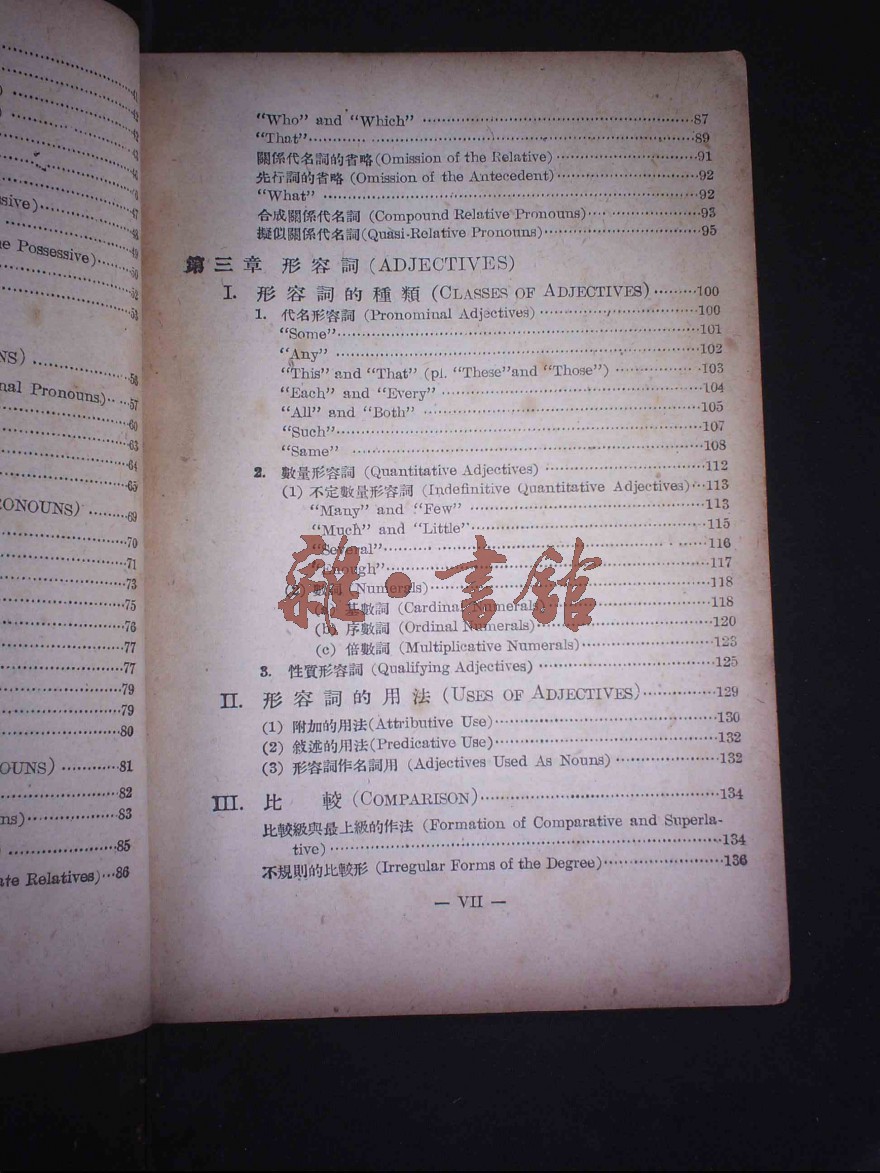 41
42
42
sive)
47
48
49
e Possessive)
50
52
53
NS)
56
nal Pronouns)
57
60
63
64
65
ONOUNS) 69
70
71
73
75
76
77
77
79
79
80
OUNS) 81
82
ns) 83
85
ate Relatives) 86
"Who" and "Which" 87
"That" 89
關係代名詞的省略(Omission of the Relative) 91
先行詞的省略 (Omission of the Antecedent) 92
"What" 92
合成關係代名詞 (Compound Relative Pronouns) 93
擬似關係代名詞(Quasi-Relative Pronouns) 95
第三章 形容詞(ADJECTIVES)
I. 形容詞的種類 (CLASSES OF ADJECTIVES) 100
1. 代名形容詞 (Pronominal Adjectives) 100
"Some" 101
"Any" 102
"This" and "That" (pl. "These"and "Those") 103
"Each" and "Every" 104
"All" and "Both" 105
"Such" 107
"Same" 108
2. 數量形容詞 (Quantitative Adjectives) 112
(1) 不定數量形容詞 (Indefinitive Quantitative Adjectives) 113
"Many" and "Few" 113
"Much" and "Little" 115
"Several" 116
"Enough" 117
(2) 數詞 (Numerals) 118
(a) 基數詞 (Cardinal Numerals) 118
(b) 序數詞 (Ordinal Numerals) 120
(c) 倍數詞 (Multiplicative Numerals) 123
3. 性質形容詞 (Qualifying Adjectives) 125
II. 形容詞的用法 (USES OF ADJECTIVES) 129
(1) 附加的用法(Attributive Use) 130
(2) 敘述的用法(Predicative Use) 132
(3) 形容詞作名詞用 (Adjectives Used As Nouns) 132
III. 比 較 (COMPARISON) 134
比較級與最上級的作法 (Formation of Comparative and Superla-
tive) 134
不規則的比較形 (Irregular Forms of the Degree) 136
— VII —
雜·書館